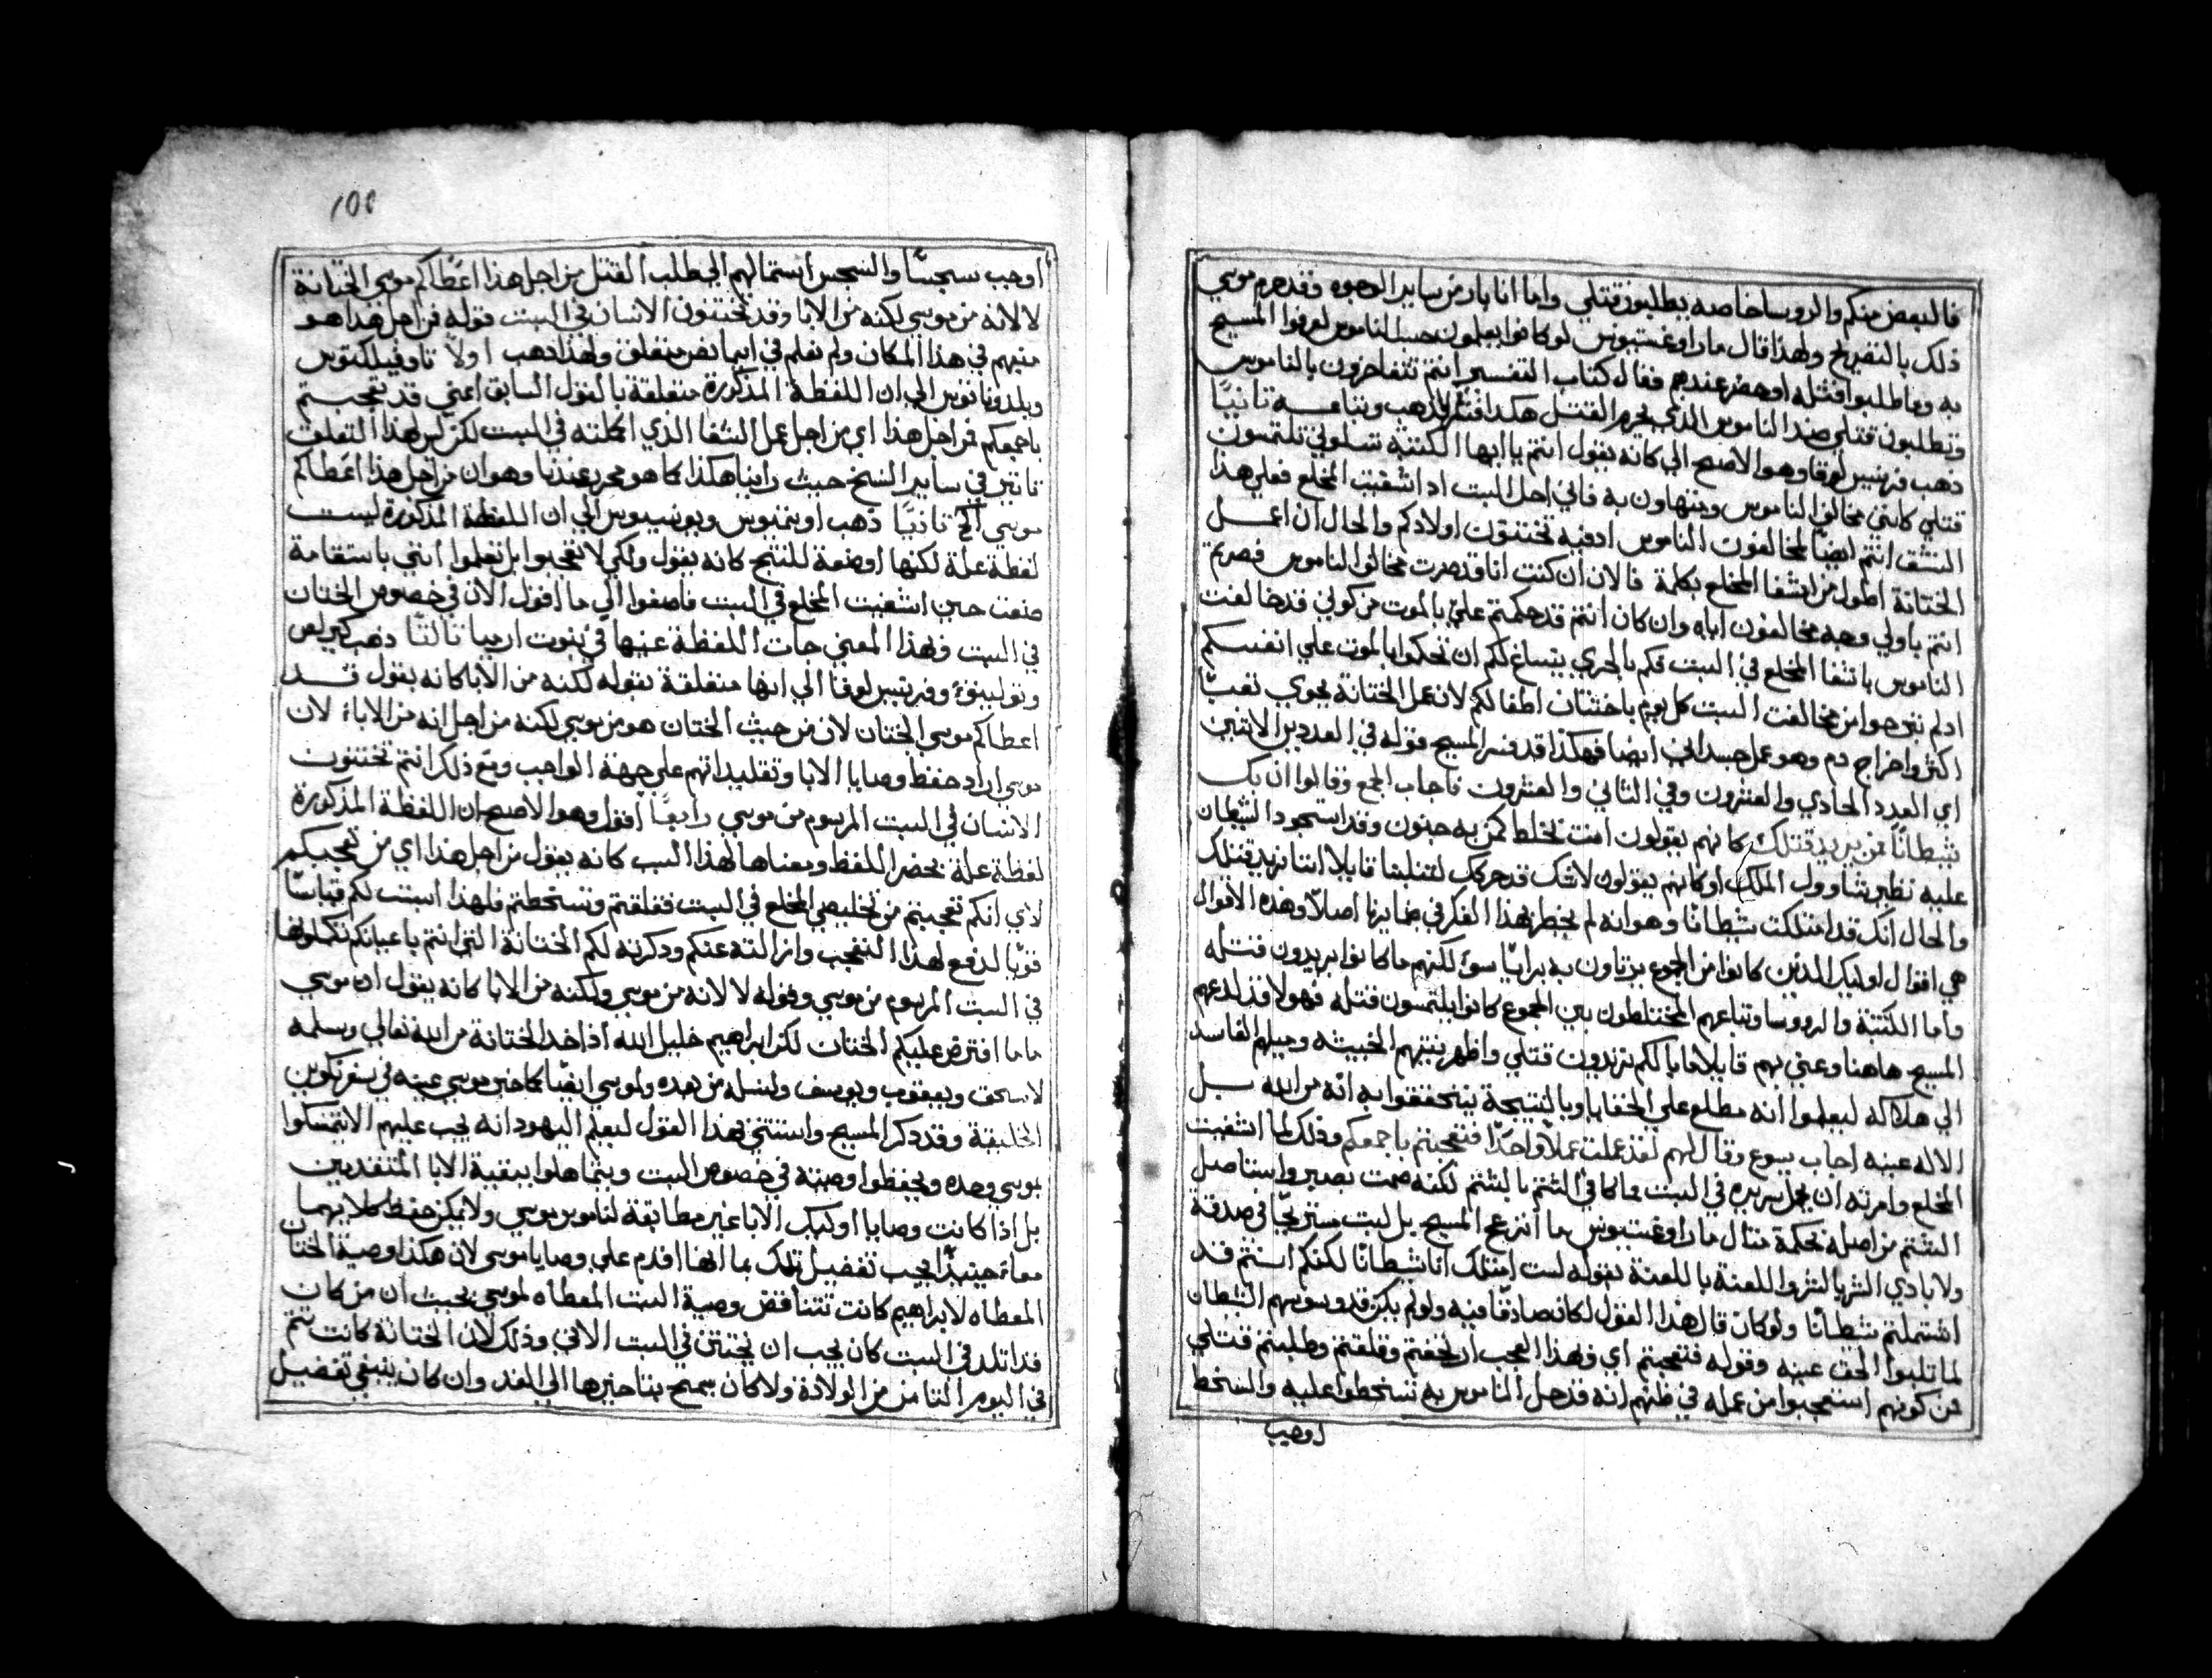 فالبعض منكم والروسا خاصه يطلبون قتلي واما انا بار من ساير الوجوه وقد حرم موسي
ذلك بالتصريح ولهذا قال مار اوغستينوس لو كانوا يعملون حسب الناموس لعرفوا المسيح
به وما طلبوا قتله اوهضر عندهم فقال كتاب التفسير انتم تتفاخرون بالناموس
وتطلبون قتلي ضد الناموس الذي يحرم القتل هكذا ذهب وتباعه تانيًا
ذهب فرنسيس لوقا وهو الاصح الي كانه يقول انتم يا ايها الكتبه تسلوني تلتمسون
قتلي كانني مخالف الناموس ومتهاون به فاني احل السبت اد اشفيت المخلع فعلي هذا
النسق انتم ايضًا تخالفون الناموس ادفيه تختنون اولادكم والحال ان اعمل
الختانة اطول من اشفا المخلع بكلمة فالان ان كنت انا قد صرت مخالف الناموس فصرتم
انتم باولي وجه مخالفون اياه وان كان انتم قد حكمتم علي بالموت من كوني قد خالفت
الناموس باشفا المخلع في السبت فكم بالحري يتساغ لكم ان تحكموا بالموت علي انفسكم
ادلم تبرحوا من مخالفت السبت كل يوم باختتان اطفالكم لان عمل الختانة يحوي تعبًا
اكثر واخراج دم وهو عمل جسداني ايضا فهكذا قد فسر المسيح قوله في العددين الاتيين
اي العدد الحادي والعشرون وفي التاني والعشرون فاجاب الجمع وقالوا ان بك
شيطانًا فمن يريد قتلك كانهم يقولون انت تخلط كمن به جنون وقد استحود الشيطان
عليه نظير شاوول الملك او كانهم يقولون لاشك قد حركك لتتلبنا قايلا اننا نريد قتلك
والحال انك قد امتلكت شيطانًا وهو انه لم يخطر هذا الفكر في ضمايرنا اصلًا وهذه الاقوال
هي اقوال اوليك الدين كانوا من الجموع يرتاون به براييًا سوء لكنهم ما كانوا يريدون قتله
واما الكتبة والرووسا وتباعهم المختلطون بين الجموع كانوا يلتمسون قتله فهولا قد لدعهم
المسيح هاهنا وعني بهم قايلا ما بالكم تريدون قتلي واظهر نيتهم الخبيثه وحيلهم الفاسد
الي هلاكه ليعلموا انه مطلع علي الخفايا وبالنتيجة يتحققوا به انه من الله بل
الاله عينه اجاب يسوع وقال لهم لقد عملت عملًا واحدًا فتعجبتم باجمعكم وذلك لما اشفيت
المخلع وامرته ان يحمل سريره في السبت وما كافي الشتم بالشتم لكنه صمت بصبر واستاصل
الشتم من اصله بحكمة متال مار اوغستينوس ما انزعج المسيح بل لبت مستريحًا في صدقة
ولابادي الشر بالشر واللعنة باللعنة بقوله لست امتلك انا شيطانًا لكنكم انتم قد
اشتملتم شيطانًا ولو كان قال هذا القول لكان صادقًا فيه ولو لم يكن قد وسوسهم الشيطان
لما تلبوا الحق عينه وقوله فتعجبتم اي وبهذا العجب ارتجفتم وقلقتم وطلبتم قتلي
من كونهم استعجبوا من عمله في ظنهم انه قد حل الناموس به تسخطوا عليه والسخط
اوجب
100
اوجب سجسًا والسجس استمالهم الي طلب القتل من اجل هذا اعطاكم موسي الختانة
لا لانه من موسي لكنه من الابا وقد تختنون الانسان في السبت قوله من اجل هذا هو
مبهم في هذا المكان ولم نعلم في ايما نص متعلق ولهذا دهب اولًا تاوفيلكتوس
وبلدوناتوس الي ان اللفظة المذكورة متعلقة بالقول السابق اعني قد تعجبتم
باجمعكم من اجل هذا اي من اجل عمل الشفا الذي اكملته في السبت لكن ليس لهذا التعلق
تاتير في ساير النسخ حيث راينا هكذا كما هو محرر عندنا وهو ان من اجل هذا اعطاكم
موسي الخ تانيًا ذهب اوتيميوس ويونسيوس الي ان اللفظة المذكورة ليست
لفظة علة لكنها اوضعة للنتيج كانه يقول ولكي لا تعجبوا بل تعلموا انني باستقامة
صنعت حين اشفيت المخلع في السبت فاصغوا الي ما اقول الان في خصوص الختان
في السبت وبهذا المعني جات اللفظة عينها في نبوت ارميا تالتًا دهب كيرلص
وتوليتوء وفرنسيس لوقا الي انها متعلقة بقوله لكنه من الابا كانه يقول قد
اعطاكم موسي الختان لان من حيث الختان هو من موسي لكنه من اجل انه من الاباء لان
موسي اراد حفظ وصايا الابا وتقليداتهم علي جهة الواجب ومع ذلك انتم تختنون
الانسان في السبت المرسوم من موسي رابعًا اقول وهو الاصح ان اللفظة المذكورة
لفظة علة بحصر اللفظ ومعناها لهذا السبب كانه يقول من اجل هذا اي من تعجبكم
لاي انكم تعجبتم من تخليصي المخلع في السبت فقلقتم وتسخطتم فلهذا اسبت لكم قياسًا
قويًا لدفع لهذا التعجب وازالته عنكم ودكرته لكم الختانة التي انتم باعيانكم تكملونها
في السبت المرسوم من موسي وقوله لا لانه من موسي ولكنه من الابا كانه يقول ان موسي
ما ما افترض عليكم الختان لكن ابراهيم خليل الله اذ اخد الختانة من الله تعالي وسلمه
لاسحق ويعقوب ويوسف ولنسله من بعده ولموسي ايضًا كما خبر موسي عينه في سفر تكوين
الخليقة وقد دكر المسيح واستتني بهذا القول ليعلم اليهود انه يجب عليهم الا يتمسكوا
بموسي وحده ويحفظوا وصيته في خصوص السبت ويتماهلوا ببقية الابا المتقدمين
بل اذا كانت وصايا اوليك الابا غير مطابقة لناموس موسي ولا يمكن حفظ كلايهما
معا فحينيدًا يجب تفضيل تلك بما انها اقدم علي وصايا موسي لان هكذا وصية الختان
المعطاه لابراهيم كانت تتناقض وصية السبت المعطاه لموسي بحيث ان من كان
قد اتلد في السبت كان يجب ان يختتن في السبت الاتي وذلك لان الختانة كانت تتم
في اليوم التامن من الولادة ولا كان يسمح بتاخيرها الي الغد وان كان ينبغي تفضيل